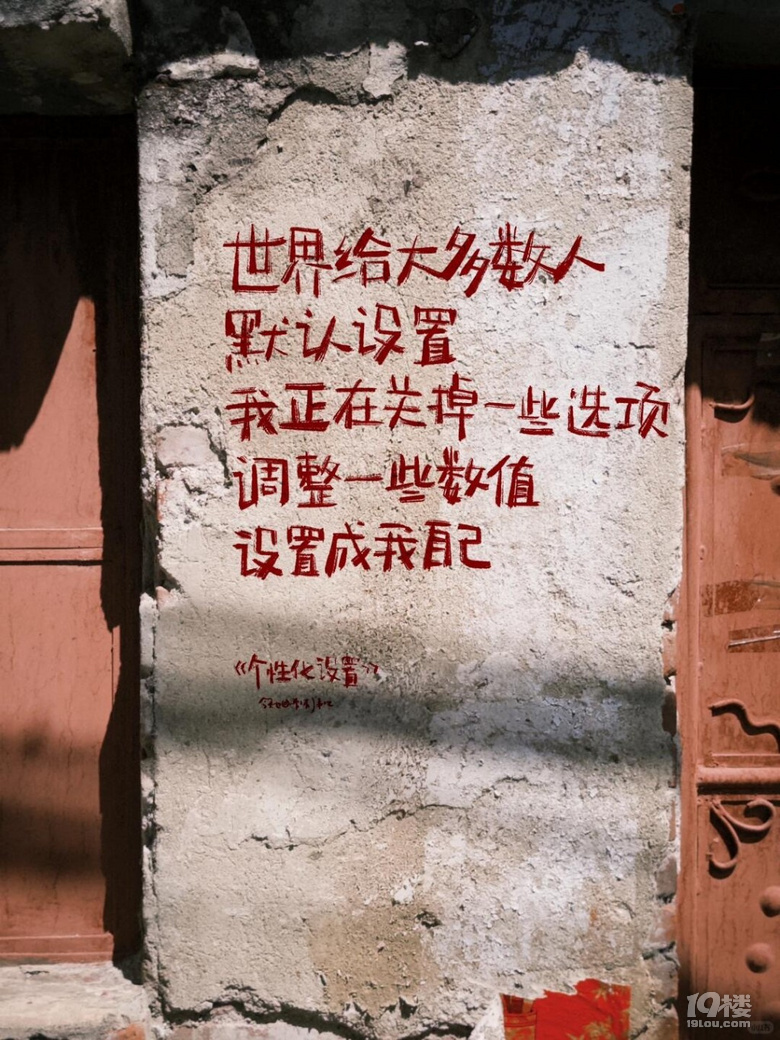 世界给大多数人
默认设置
我正在关掉一些选项
调整一些数值
设置成我自己
《个性化设置》
19楼
19lou.com